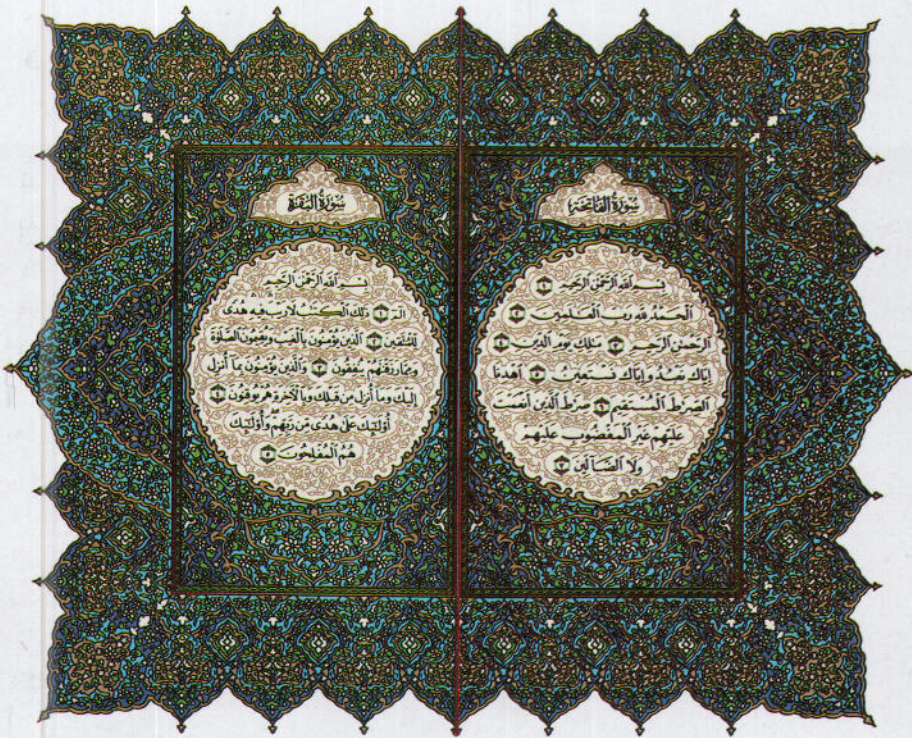 سُورَةُ الْفَاتِحَةِ
بِسْمِ اللَّهِ الرَّحْمَٰنِ الرَّحِيمِ ١
الْحَمْدُ لِلَّهِ رَبِّ الْعَٰلَمِينَ ٢
الرَّحْمَٰنِ الرَّحِيمِ ٣ مَٰلِكِ يَوْمِ الدِّينِ ٤
إِيَّاكَ نَعْبُدُ وَإِيَّاكَ نَسْتَعِينُ ٥ اهْدِنَا
الصِّرَٰطَ الْمُسْتَقِيمَ ٦ صِرَٰطَ الَّذِينَ أَنْعَمْتَ
عَلَيْهِمْ غَيْرِ الْمَغْضُوبِ عَلَيْهِمْ
وَلَا الضَّآلِّينَ ٧
سُورَةُ الْبَقَرَةِ
بِسْمِ اللَّهِ الرَّحْمَٰنِ الرَّحِيمِ
الٓمٓ ١ ذَٰلِكَ الْكِتَٰبُ لَا رَيْبَ فِيهِ هُدًى
لِّلْمُتَّقِينَ ٢ الَّذِينَ يُؤْمِنُونَ بِالْغَيْبِ وَيُقِيمُونَ الصَّلَوٰةَ
وَمِمَّا رَزَقْنَٰهُمْ يُنفِقُونَ ٣ وَالَّذِينَ يُؤْمِنُونَ بِمَآ أُنزِلَ
إِلَيْكَ وَمَآ أُنزِلَ مِن قَبْلِكَ وَبِالْءَاخِرَةِ هُمْ يُوقِنُونَ ٤
أُو۟لَٰٓئِكَ عَلَىٰ هُدًى مِّن رَّبِّهِمْ وَأُو۟لَٰٓئِكَ
هُمُ الْمُفْلِحُونَ ٥